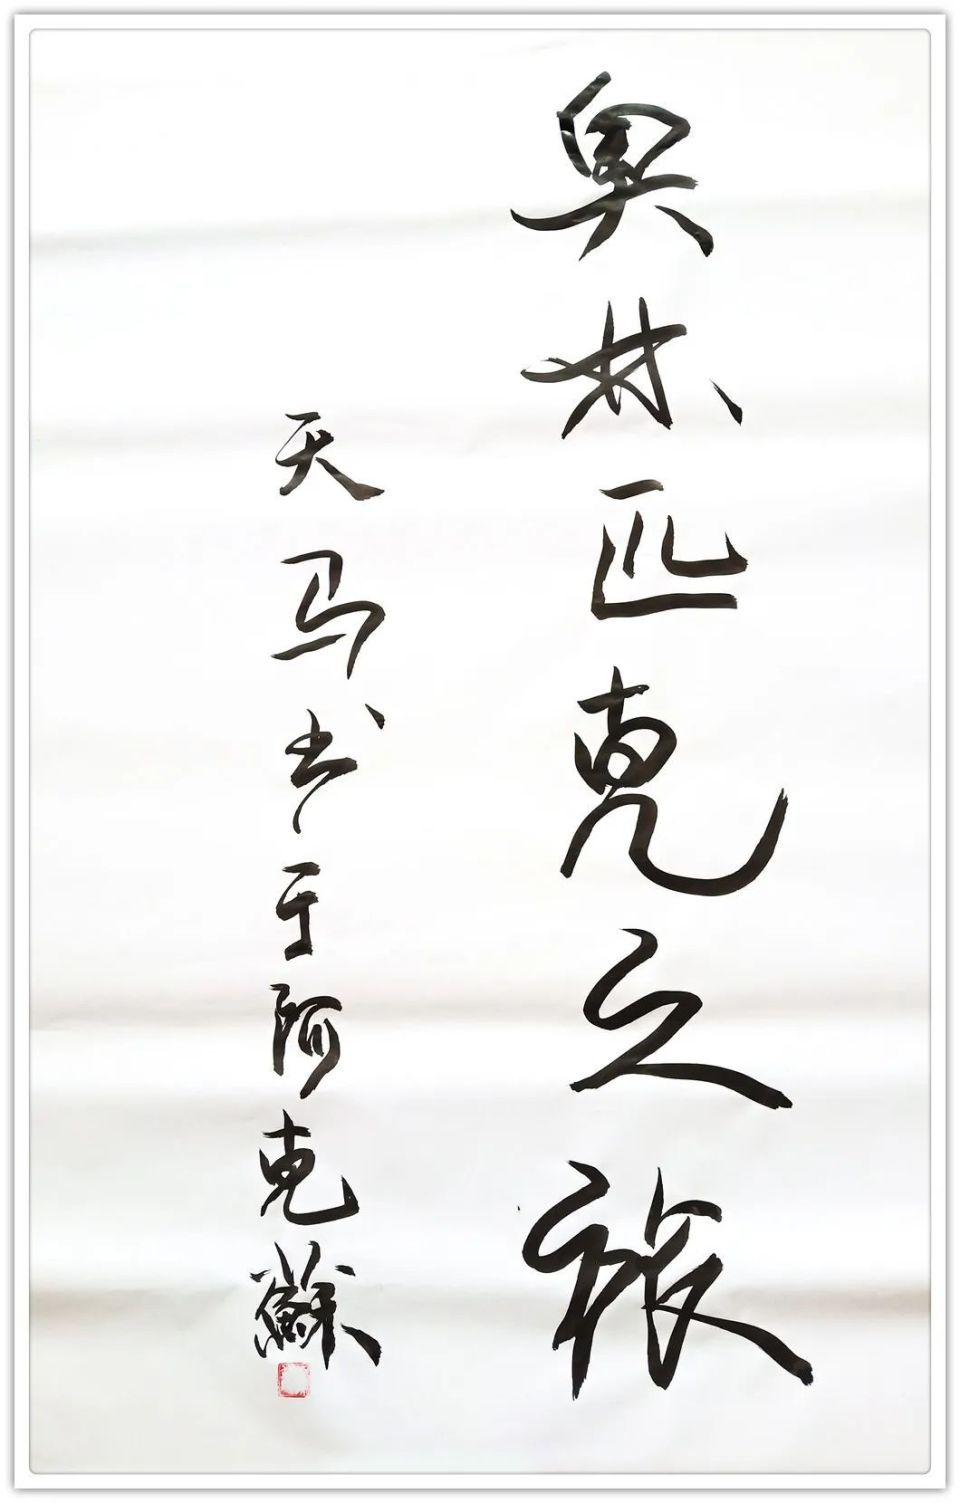 奥林匹克之旅
天马书于阿克蘇